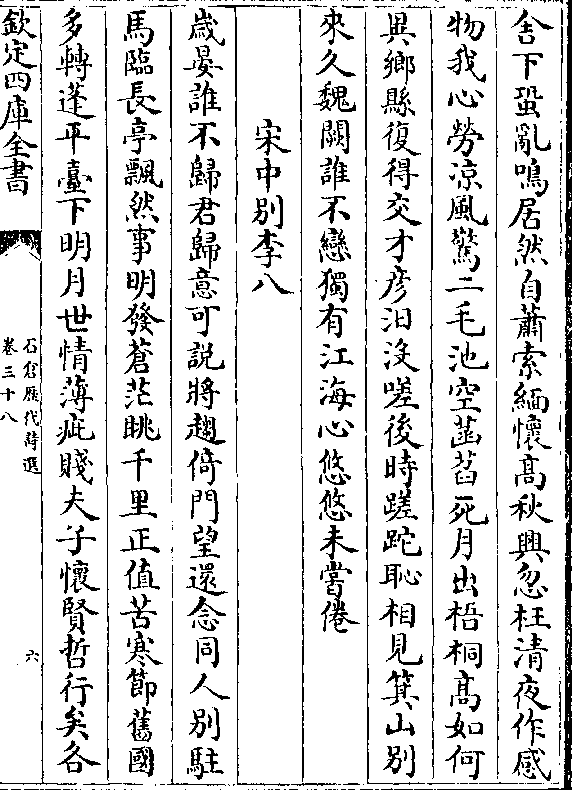 舍下蛩亂鳴居然自蕭索緬懷高秋興忽枉清夜作感
物我心勞涼風驚二毛池空菡萏死月出梧桐高如何
異鄉縣復得交才彦汨沒嗟後時蹉跎恥相見箕山別
來久魏闕誰不戀獨有江海心悠悠未嘗倦
宋中別李八
歲晏誰不歸君歸意可說將趨倚門望還念同人別駐
馬臨長亭飄然事明發蒼茫眺千里正值苦寒節舊國
多轉蓬平臺下明月世情薄疵賤夫子懷賢哲行矣各
欽定四庫全書
石倉歷代詩選
卷三十八
六